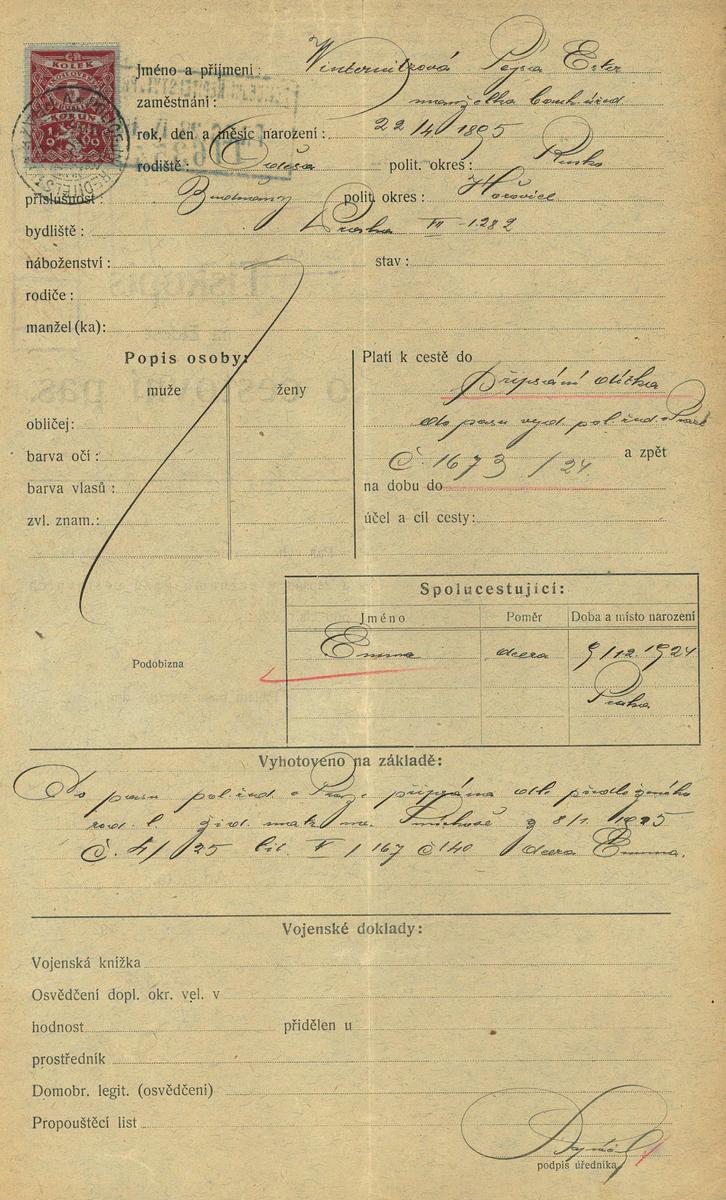 KOLEK
KORUN
Jméno a příjmení: Winternitzová Pejsa Ester
zaměstnání: manželka bank. úřed
rok, den a měsíc narození: 22/4 1895
rodiště: Oděsa polit. okres: Rusko
příslušnost: polit. okres: Hořovice
bydliště: Praha VII-1282
náboženství: stav:
rodiče:
manžel (ka):
Popis osoby:
muže ženy
obličej:
barva očí:
barva vlasů:
zvl. znam.:
Platí k cestě do
připsání dítka
do pasu vyd. pol. řed. v Praze
č. 1673/24. a zpět
na dobu do
účel a cíl cesty:
Podobizna
Spolucestující:
Jméno Poměr Doba a místo narození
Emma dcera 9/12. 1924
Praha
Vyhotoveno na základě:
Do pasu pol. řed. v Praze připsána dle předloženého
rod. l. žid. matr. na Smíchově z 8/1 1925
č. 4/25 lit V/167 č 140 dcera Emma.
Vojenské doklady:
Vojenská knížka
Osvědčení dopl. okr. vel. v
hodnost přidělen u
prostředník
Domobr. legit. (osvědčení)
Propouštěcí list
podpis úředníka